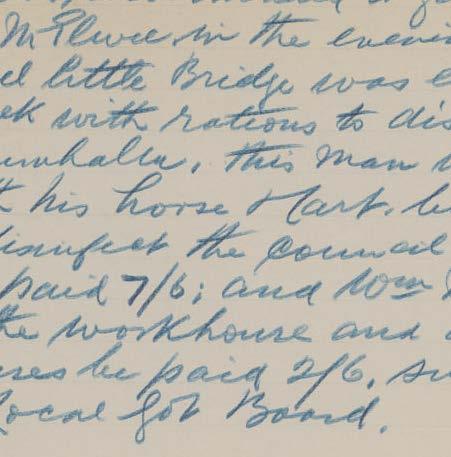 McElwee, in the eveni
little Bridge was
ek with rations to dis
this man
his horse & cart.
disinfect the council
paid 7/6; and Wm
the workhouse and
be paid 2/6,
Local Govt Board.